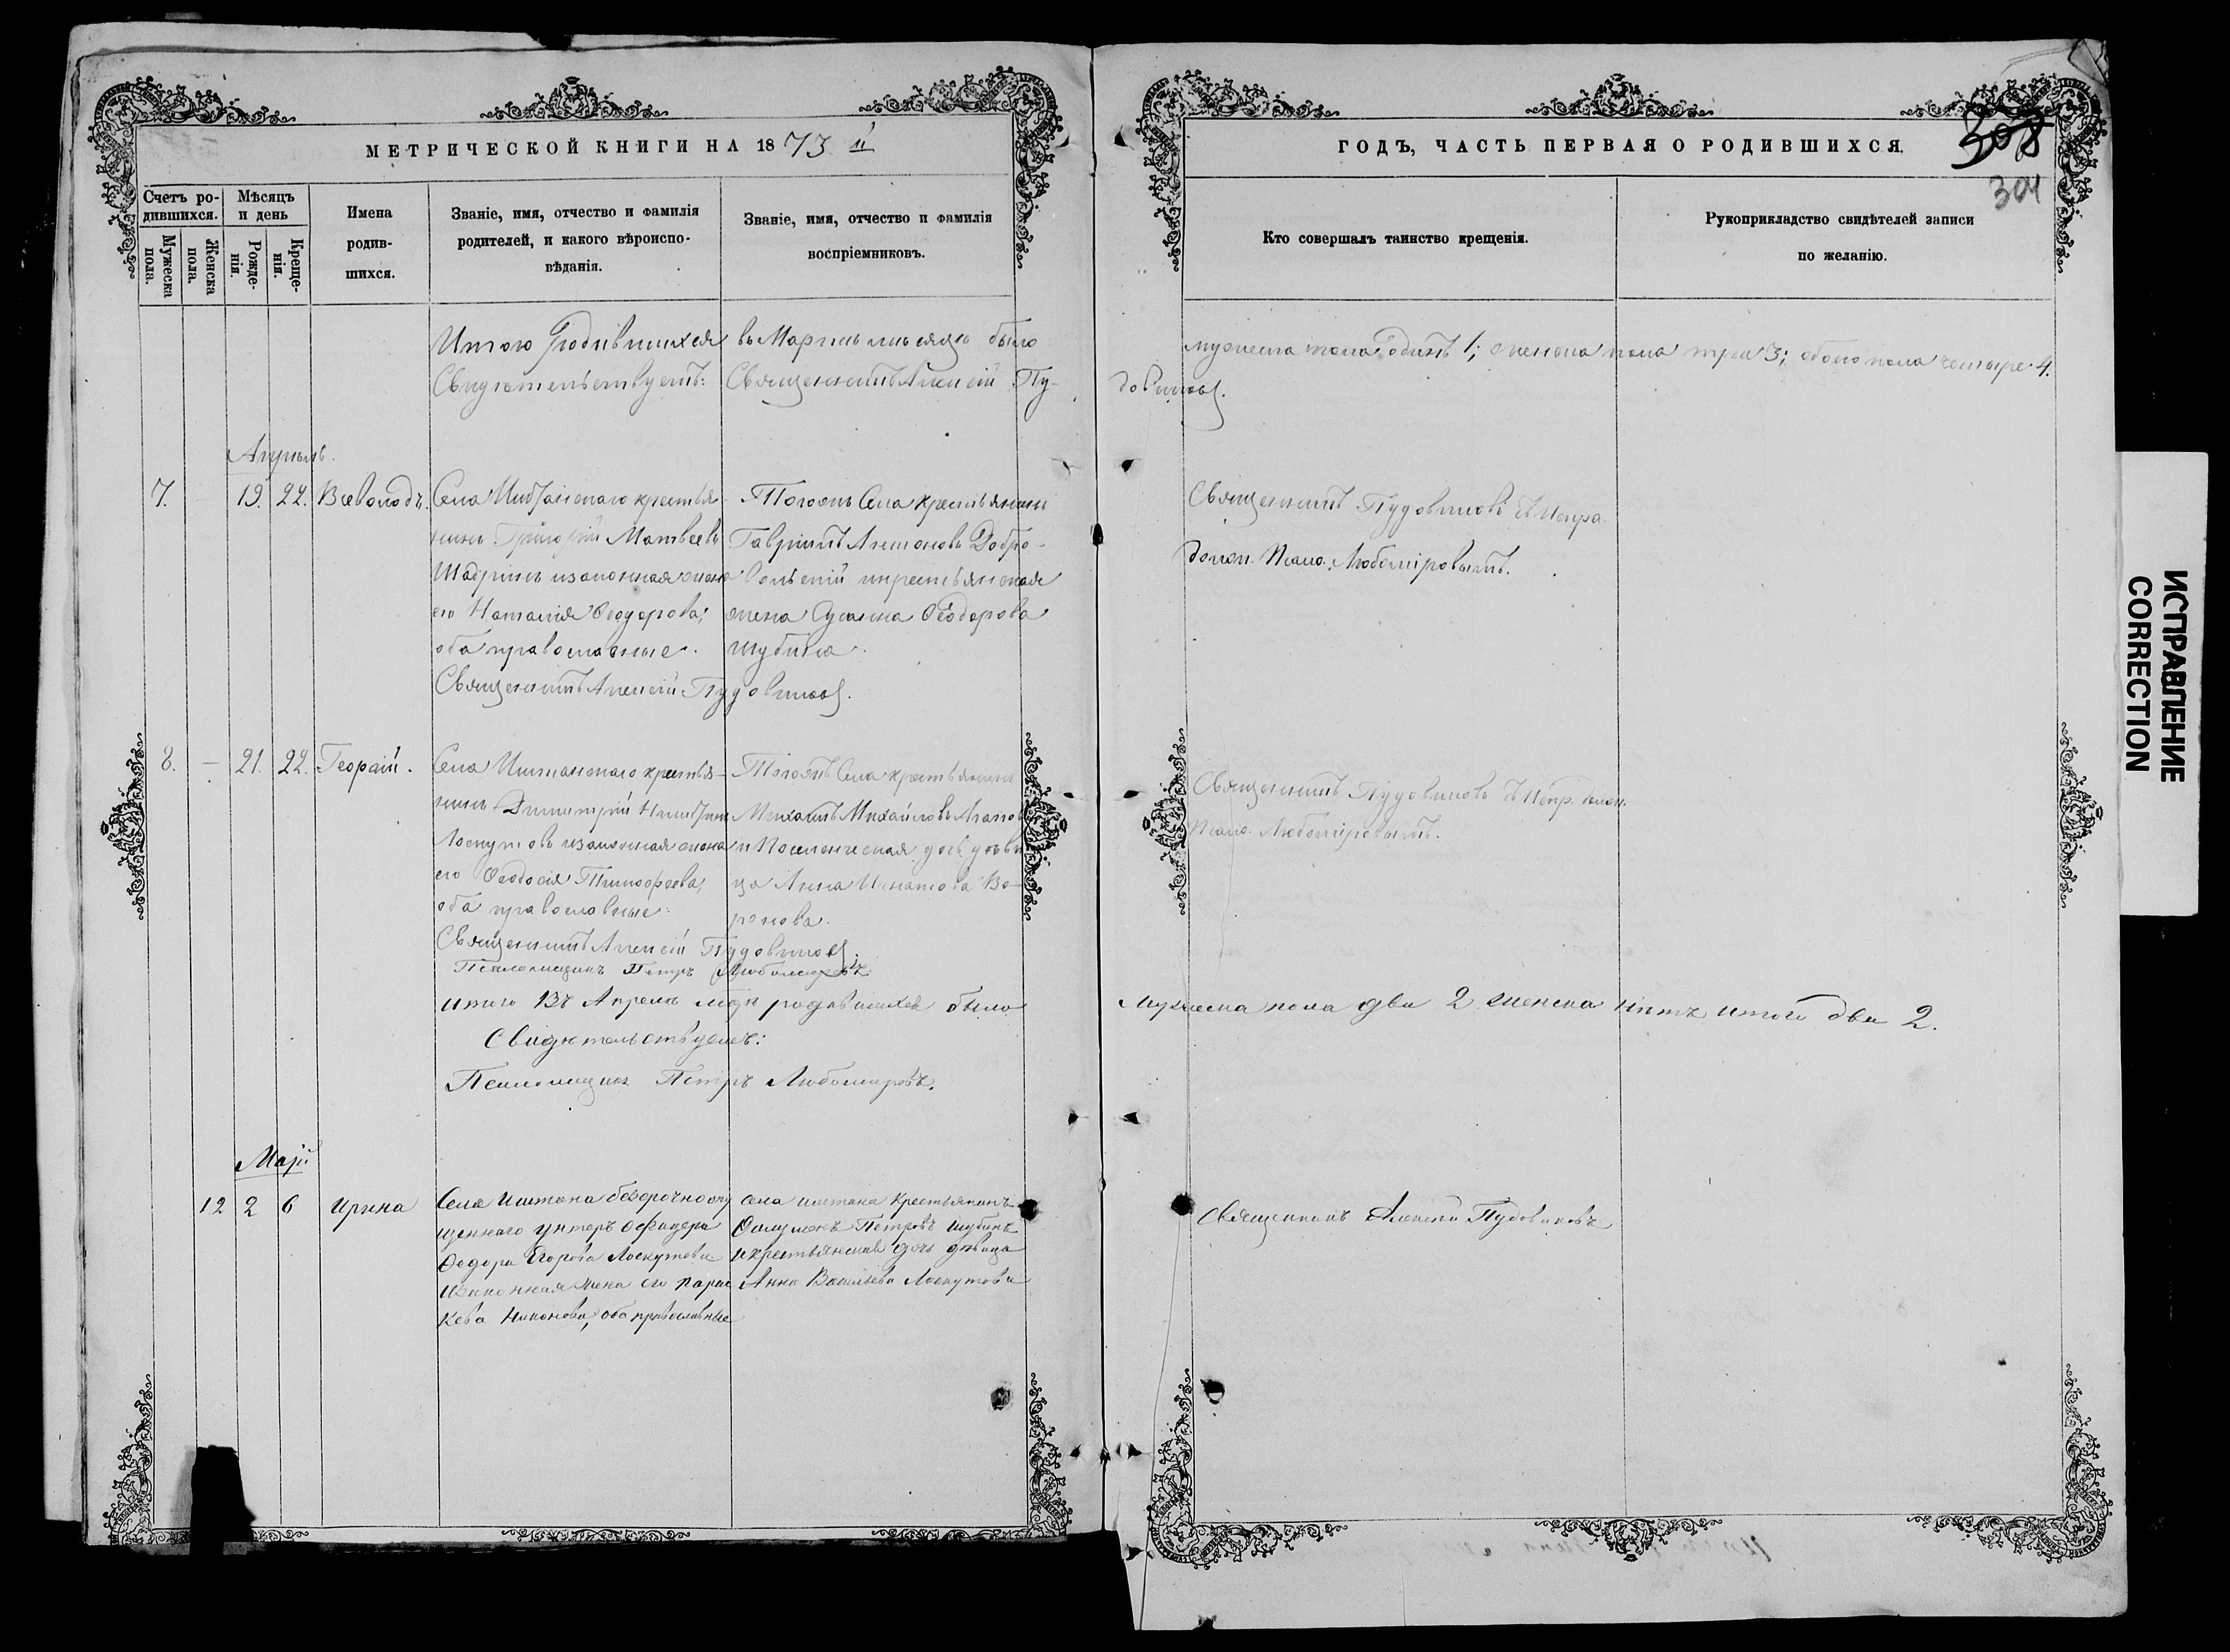 МЕТРИЧЕСКОЙ КНИГИ НА 1873 й
ГОДЪ, ЧАСТЬ ПЕРВАЯ О РОДИВШИХСЯ.
308
304
Счетъ ро-
дившихся.
Мужеска
пола.
Женска
пола.
Мѣсяцъ
и день
Рожде-
нія.
Креще-
нія.
Имена
родив-
шихся.
Званіе, имя, отчество и фамилія
родителей, и какого вѣроиспо-
вѣданія.
Званіе, имя, отчество и фамилія
воспріемниковъ.
Кто совершалъ таинство крещенія.
Рукоприкладство свидѣтелей записи
по желанію.
Итого Родившихся въ Мартѣ мѣсяцѣ было мужеска пола Одинъ 1; женска пола три 3; обоего пола четыре 4.
Свидѣтельствуетъ: Священникъ Алексій Пу-
довиковъ.
Апрѣль.
7. 19. 22. Всеволодъ.
Села Иштанскаго крестья-
нинъ Григорій Матвѣевъ
Шадринъ и законная жена
его Наталія Ѳеодорова;
оба православные.
Священникъ Алексій Пудовиковъ.
Тогожъ Села крестьянинъ
Гавріилъ Антоновъ Добро-
вольскій и крестьянская
жена Сусанна Ѳеодорова
Шубина.
Священникъ Пудовиковъ съ Испра.
должн. Псало. Любомировымъ.
8. — 21. 22. Георгій.
Села Иштанскаго крестья-
нинъ Димитрій
Лоскутовъ и законная жена
его Ѳеодосія Тимофеева;
оба православные.
Священникъ Алексій Пудовиковъ.
Псаломщикъ Петръ Любомировъ
Тогожъ Села крестьянинъ
Михаилъ Михайловъ
и Поселенческая дочь дѣви-
ца Анна Игнатова Во-
ронова.
Священникъ Пудовиковъ съ Испр. должн.
Псало. Любомировымъ.
итого Въ Апрелѣ мцѣ родившихся было мужеска пола два 2 женска нѣтъ итого два 2.
Свидѣтельствуетъ:
Псаломщикъ Петръ Любомировъ.
Май
12 2 6 Ирина
Села Иштана безсрочноотпу
щеннаго унтеръ офицера
Ѳедора Егорова Лоскутова
и законная жена его Парас
кева Никонова, оба православные
села иштана Крестьянинъ
Филимонъ Петровъ Шубинъ
и крестьянская дочь дѣвица
Анна Васильева Лоскутова
Священникъ Алексей Пудовиковъ
ИСПРАВЛЕНИЕ
CORRECTION